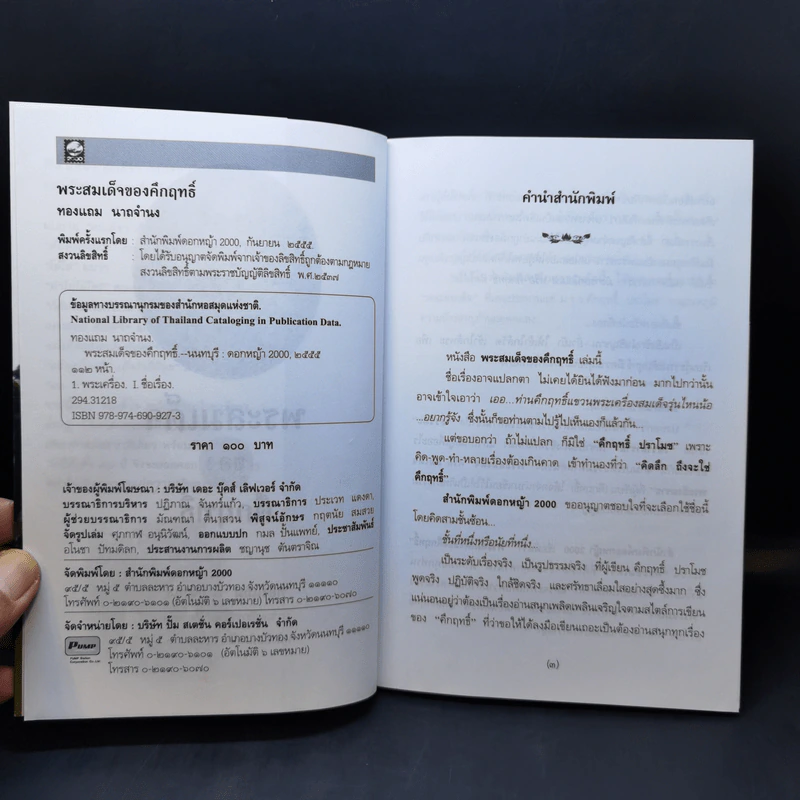 พระสมเด็จของคึกฤทธิ์
ทองแถม นาถจำนง
พิมพ์ครั้งแรกโดย : สำนักพิมพ์ดอกหญ้า 2000, กันยายน ๒๕๕๕
สงวนลิขสิทธิ์ : โดยได้รับอนุญาตจัดพิมพ์จากเจ้าของลิขสิทธิ์ถูกต้องตามกฎหมาย
สงวนลิขสิทธิ์ตามพระราชบัญญัติลิขสิทธิ์ พ.ศ.๒๕๓๗
ข้อมูลทางบรรณานุกรมของสำนักหอสมุดแห่งชาติ.
National Library of Thailand Cataloging in Publication Data.
ทองแถม นาถจำนง.
พระสมเด็จของคึกฤทธิ์.--นนทบุรี : ดอกหญ้า 2000, ๒๕๕๕
๑๑๒ หน้า.
1. พระเครื่อง. I. ชื่อเรื่อง.
294.31218
ISBN 978-974-690-927-3
ราคา ๑๐๐ บาท
เจ้าของผู้พิมพ์โฆษณา : บริษัท เดอะ บุ๊คส์ เลิฟเวอร์ จำกัด
บรรณาธิการบริหาร ปฏิภาณ จันทร์แก้ว, บรรณาธิการ ประเวท แตงดา,
ผู้ช่วยบรรณาธิการ มัณฑนา ตีนาสวน พิสูจน์อักษร กฤตนัย สมสวย
จัดรูปเล่ม ศุภกาพ อนุนิวัฒน์, ออกแบบปก กมล ปั้นแพทย์, ประชาสัมพันธ์
อโนชา ปัทมดิลก, ประสานงานการผลิต ชญานุช ตันตราจิณ
จัดพิมพ์โดย : สำนักพิมพ์ดอกหญ้า 2000
๙๕/๕ หมู่ ๕ ตำบลละหาร อำเภอบางบัวทอง จังหวัดนนทบุรี ๑๑๑๑๐
โทรศัพท์ ๐-๒๑๙๐-๖๑๐๑ (อัตโนมัติ ๖ เลขหมาย) โทรสาร ๐-๒๑๙๐-๖๐๗๐
จัดจำหน่ายโดย : บริษัท ปั๊ม สเตชั่น คอร์เปอเรชั่น จำกัด
PUMP
๙๕/๕ หมู่ ๕ ตำบลละหาร อำเภอบางบัวทอง จังหวัดนนทบุรี ๑๑๑๑๐
โทรศัพท์ ๐-๒๑๙๐-๖๑๐๑ (อัตโนมัติ ๖ เลขหมาย)
โทรสาร ๐-๒๑๙๐-๖๐๗๐
คำนำสำนักพิมพ์
หนังสือ พระสมเด็จของคึกฤทธิ์ เล่มนี้
ชื่อเรื่องอาจแปลกตา ไม่เคยได้ยินได้ฟังมาก่อน มากไปกว่านั้น
อาจเข้าใจเอาว่า เออ...ท่านคึกฤทธิ์แขวนพระเครื่องสมเด็จรุ่นไหนน้อ
...อยากรู้จัง ซึ่งนั้นก็ขอท่านตามไปรู้ไปเห็นเองก็แล้วกัน...
แต่ขอบอกว่า ถ้าไม่แปลก ก็มิใช่ “คึกฤทธิ์ ปราโมช” เพราะ
คิด-พูด-ทำ-หลายเรื่องต้องเกินคาด เข้าทำนองที่ว่า “คิดลึก ถึงจะใช่
คึกฤทธิ์”
สำนักพิมพ์ดอกหญ้า 2000 ขออนุญาตชอบใจที่จะเลือกใช้ชื่อนี้
โดยคิดสามชั้นซ้อน...
ชั้นที่หนึ่งหรือนัยที่หนึ่ง...
เป็นระดับเรื่องจริง เป็นรูปธรรมจริง ที่ผู้เขียน คึกฤทธิ์ ปราโมช
พูดจริง ปฏิบัติจริง ใกล้ชิดจริง และศรัทธาเลื่อมใสอย่างสุดซึ้งมาก ซึ่ง
แน่นอนอยู่ว่าต้องเป็นเรื่องอ่านสนุกเพลิดเพลินเจริญใจตามสไตล์การเขียน
ของ “คึกฤทธิ์” ที่ว่าขอให้ได้ลงมือเขียนเถอะเป็นต้องอ่านสนุกทุกเรื่อง
(๓)